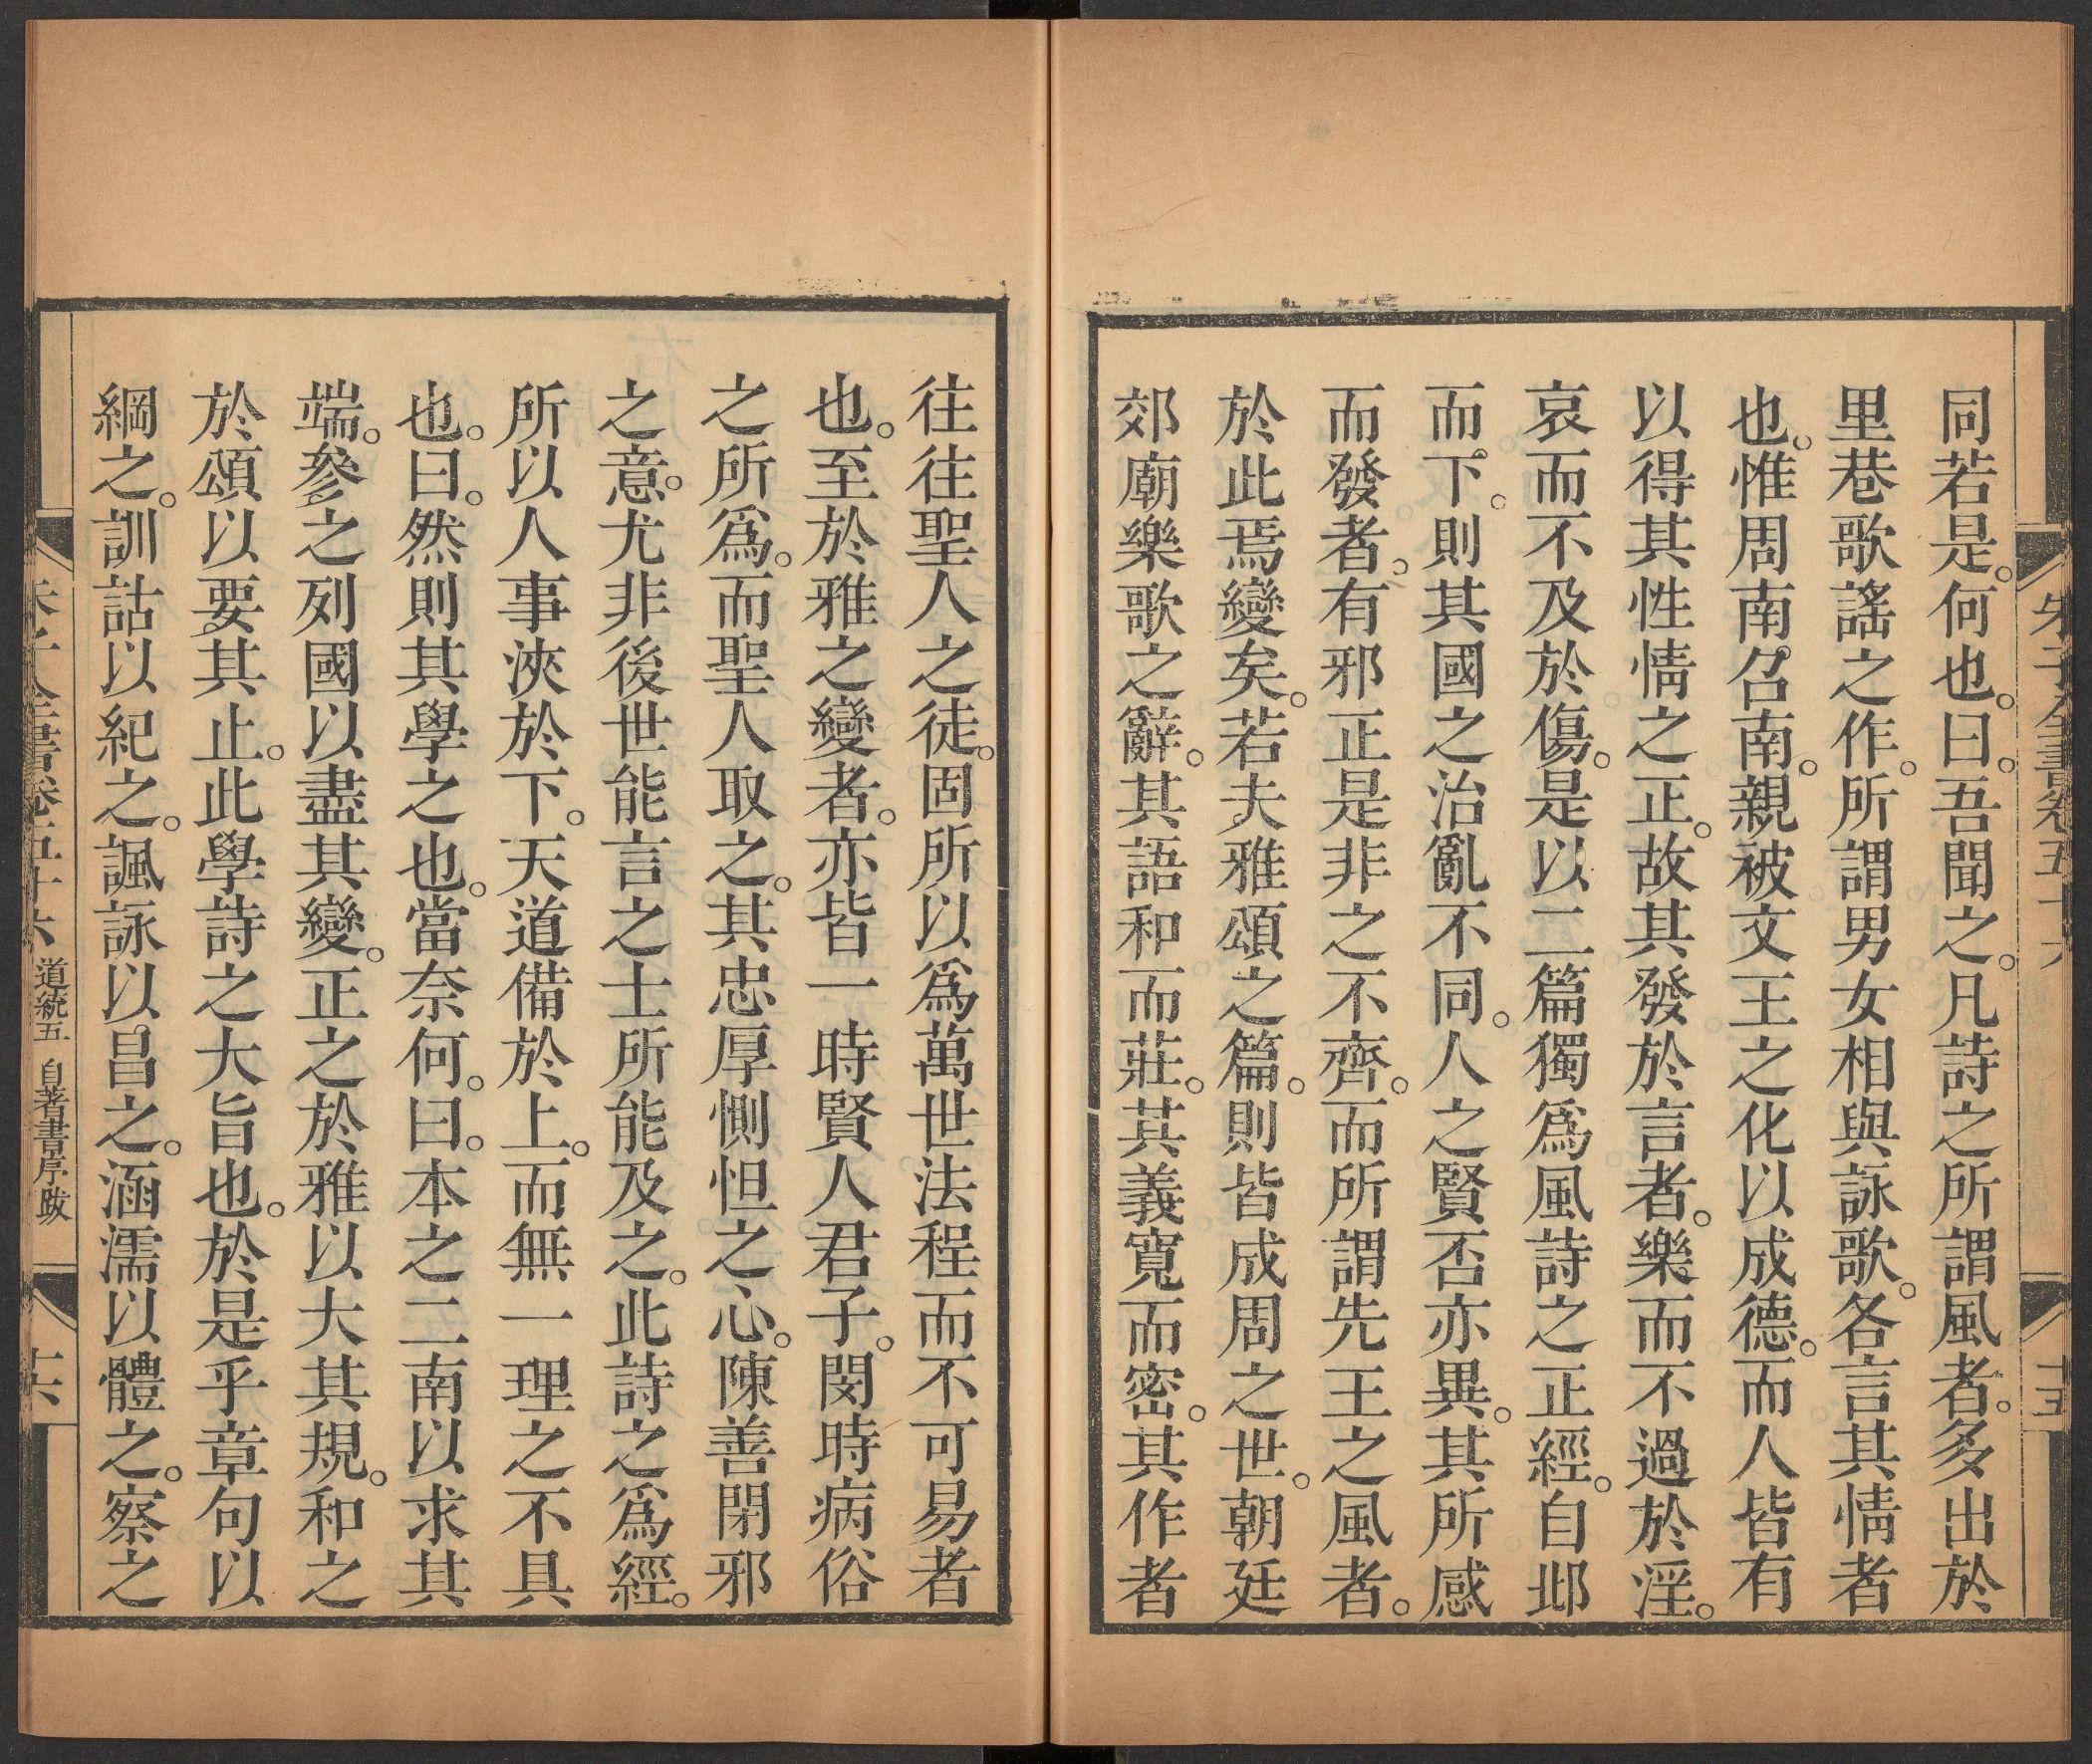 朱子全書卷五十六
十五
同若是。何也。曰。吾聞之。凡詩之所謂風者。多出於
里巷歌謠之作。所謂男女相與詠歌。各言其情者
也。惟周南、召南。親被文王之化以成德。而人皆有
以得其性情之正。故其發於言者。樂而不過於淫。
哀而不及於傷。是以二篇獨為風詩之正經。自邶
而、下。則其國之治亂不同。人之賢否亦異。其所感
而發者。有邪正是非之不齊。而所謂先王之風者。
於此焉變矣。若夫雅頌之篇。則皆成周之世。朝廷
郊廟樂歌之辭。其語和而莊。其義寬而密。其作者
往往聖人之徒。固所以為萬世法程而不可易者
也。至於雅之變者。亦皆一時賢人君子。閔時病俗
之所為。而聖人取之。其忠厚惻怛之心。陳善閉邪
之意。尤非後世能言之士所能及之。此詩之為經。
所以人事浹於下。天道備於上。而無一理之不具
也。曰。然則其學之也。當奈何。曰。本之二南以求其
端。參之列國以盡其變。正之於雅以大其規。和之
於頌以要其止。此學詩之大旨也。於是乎章句以
綱之。訓詁以紀之。諷詠以昌之。涵濡以體之。察之
朱子全書卷五十六 道統五 自著書序跋
十六